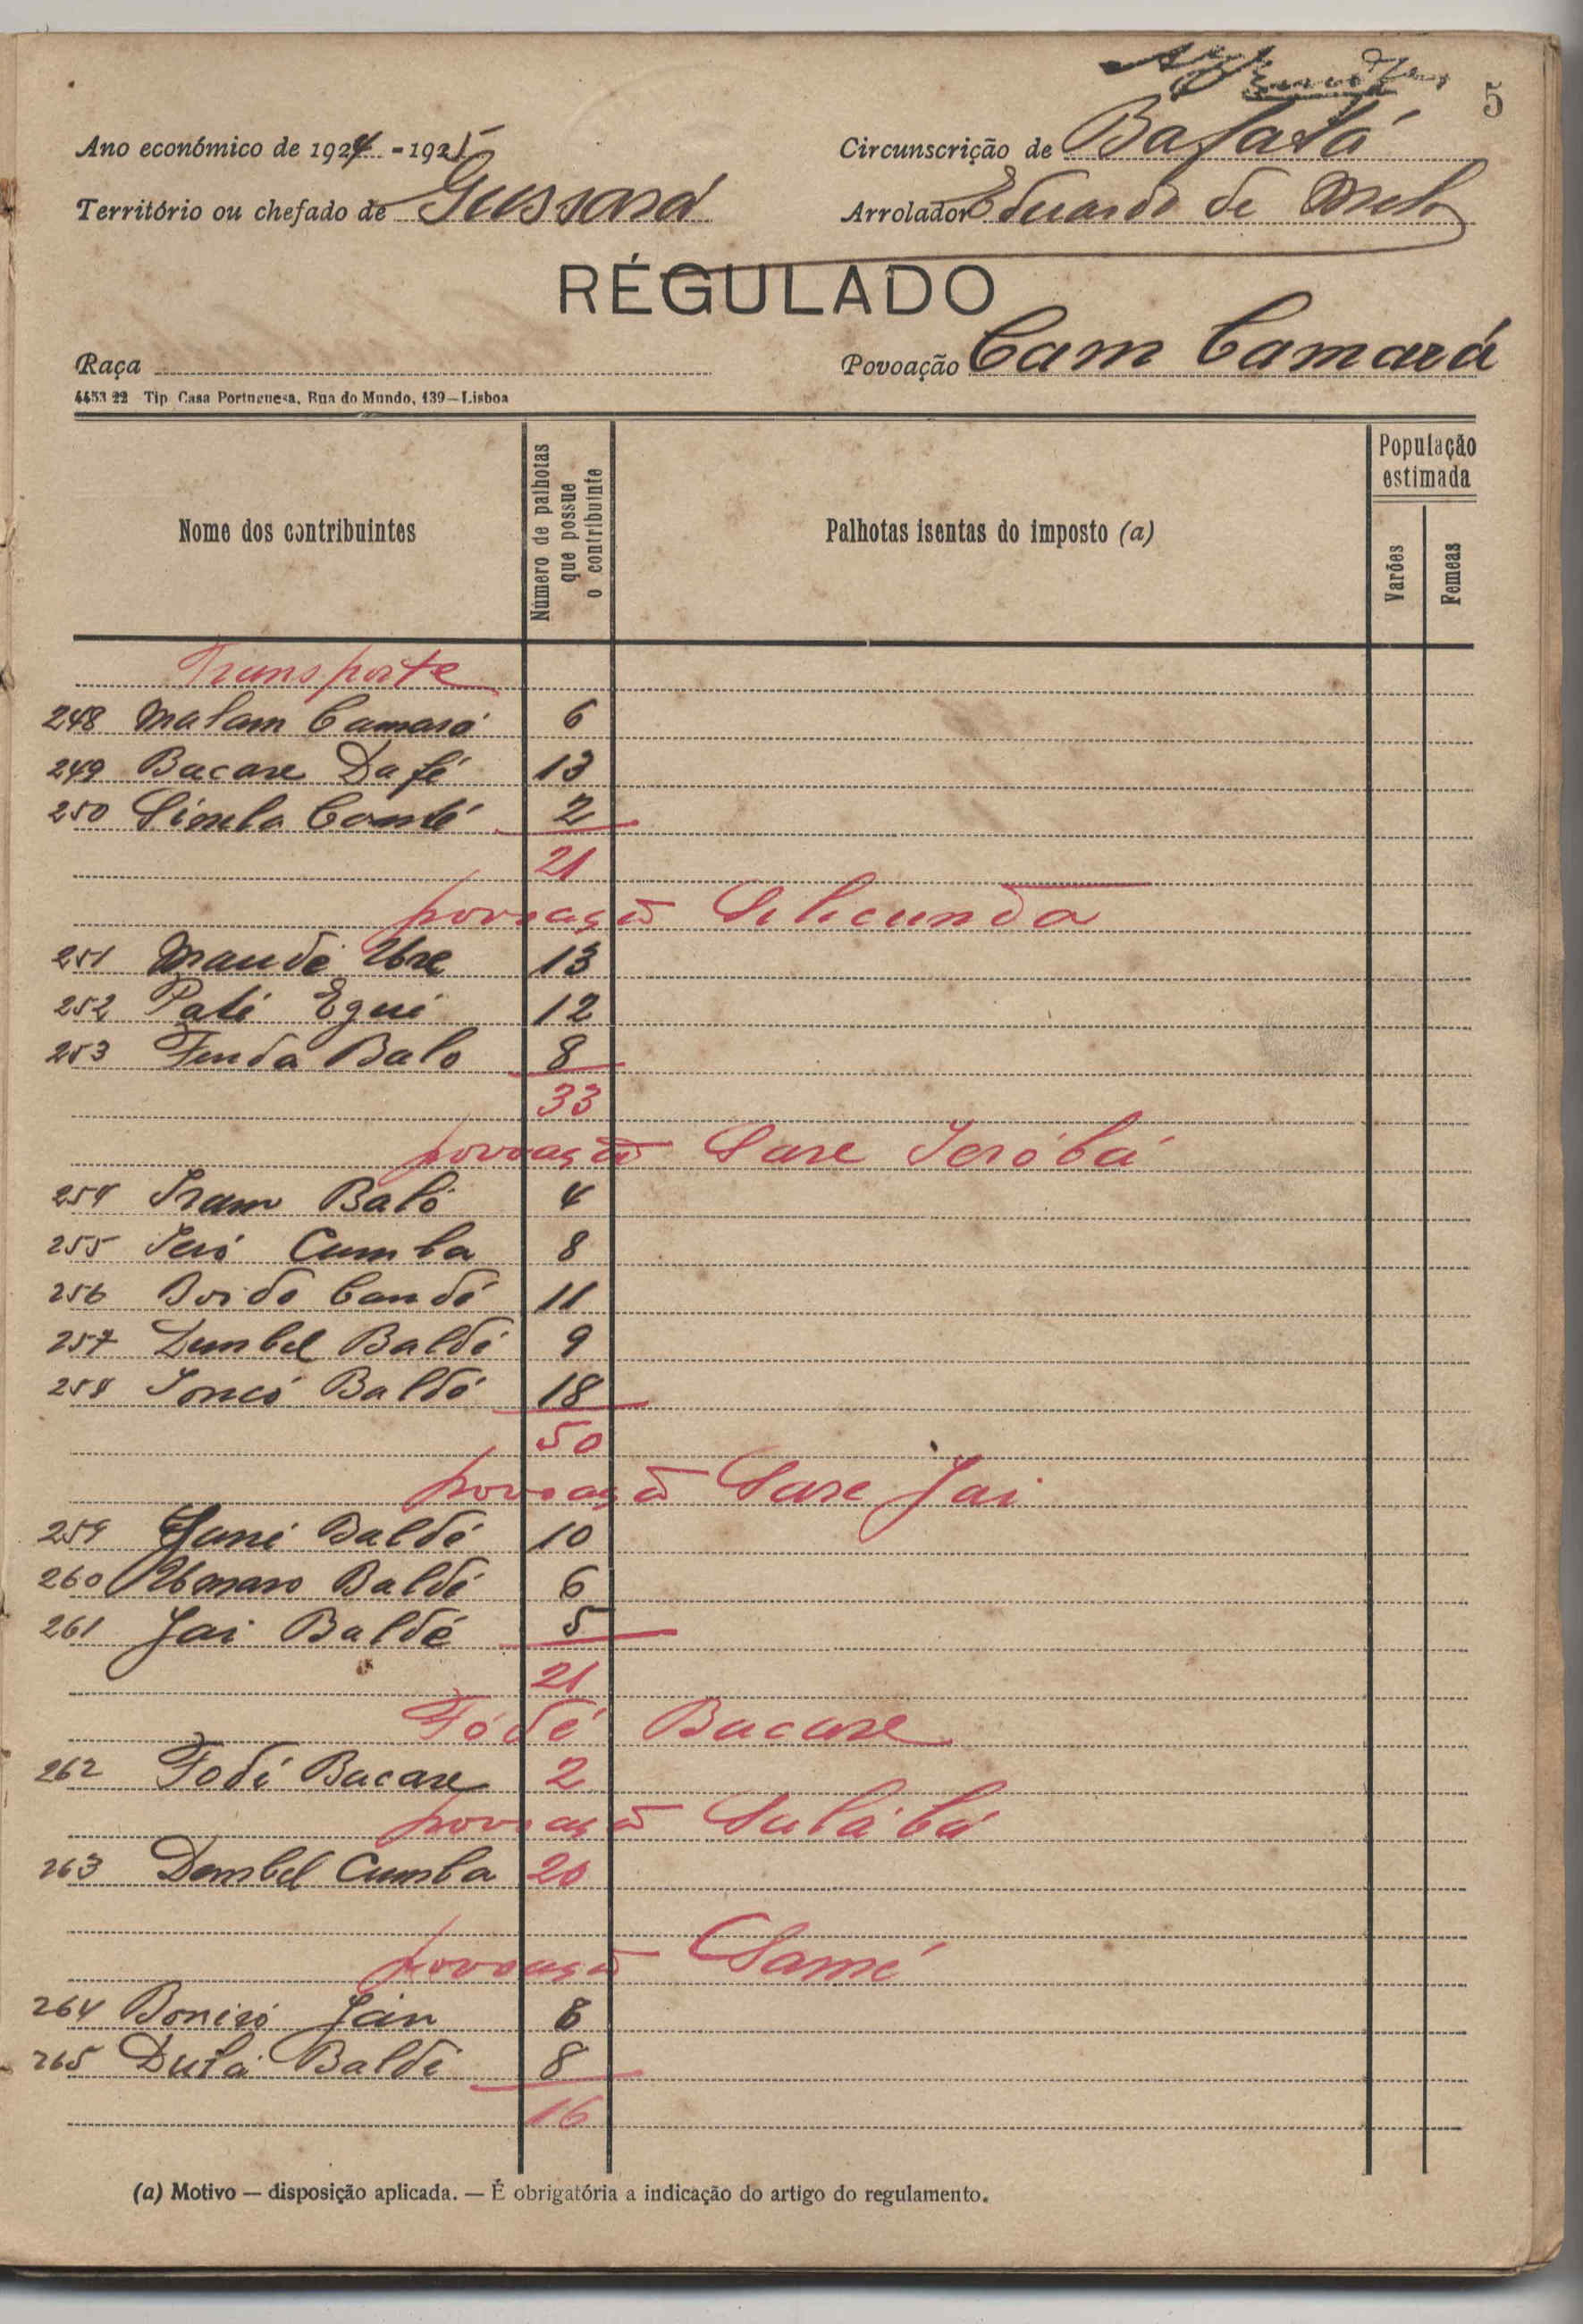 5
Ano económico de 1924 - 1925 Circunscrição de Bafatá
Território ou chefado de Gussará Arrolador Eduardo de Melo
RÉGULADO
Raça Povoação Cam Camará
4453 22 Tip. Casa Portuguesa, Rua do Mundo, 139—Lisboa
Nome dos contribuintes
Número de palhotas
que possue
o contribuinte
Palhotas isentas do imposto (a)
População
estimada
Varões
Femeas
Transporte
248 Malam Camará 6
249 Bacare Dafé 13
250 Conté 2
21
povoação Silicunda
251 Maudé Ure 13
252 Paté Egué 12
253 Fenda Balo 8
33
povoação Sare Teróbá
254 Iram Baló 4
255 Teró Cumba 8
256 Candé 11
257 Dembel Baldé 9
258 Baldé 18
50
povoação Sare Jai
259 Sané Baldé 10
260 Umaro Baldé 6
261 Jai Baldé 5
21
Fódé Bacare
262 Fodé Bacare 2
povoação Sulábá
263 Dembel Cumba 20
povoação Samé
264 Boneró Jan 8
265 Dulá Baldé 8
16
(a) Motivo — disposição aplicada. — É obrigatória a indicação do artigo do regulamento.